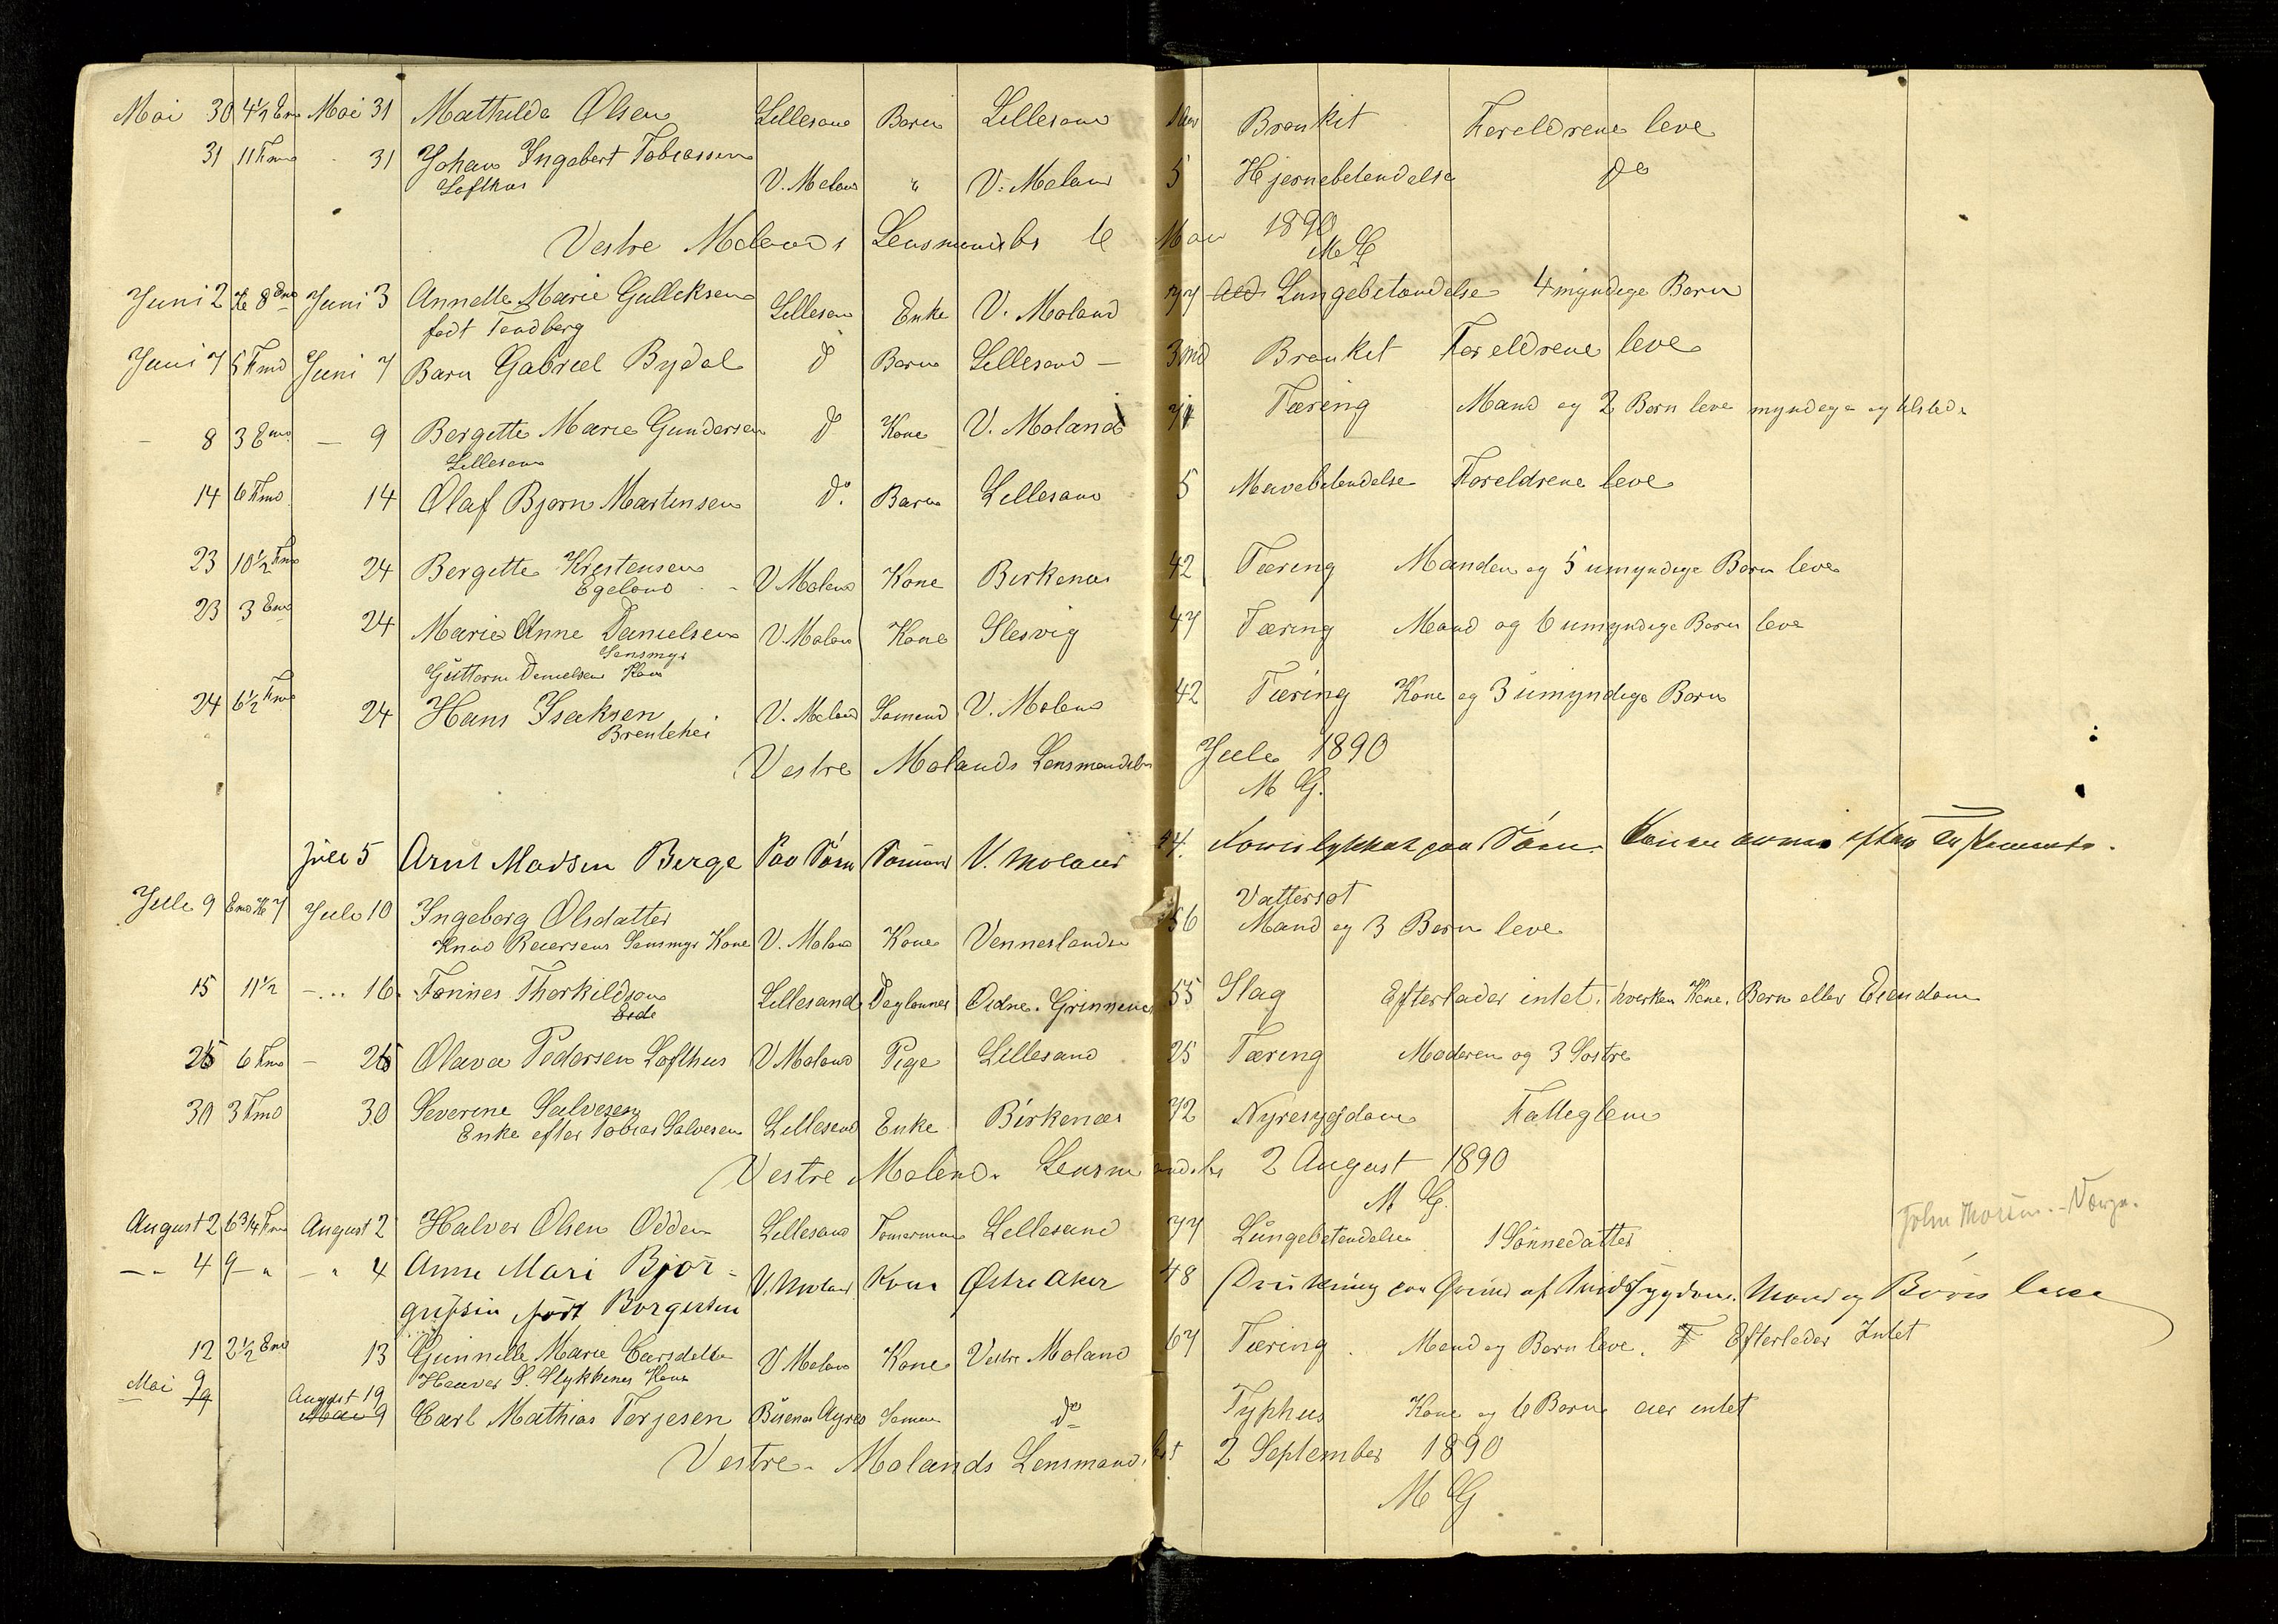 Mai 30 4½ Em Mai 31 Mathilde Olsen Lillesand Barn Lillesand Bronkit Foreldrene leve
31 11 Fmd 31 Johan Ingebert Tobiassen
Lofthus V. Moland " V. Moland 5 Hjernebetendelse do
Vestre Molands Lensmandsbs 1890
M G
Juni 2 Kl 8 Emd Juni 3 Annette Marie Gulleksen Lillesand Enke V. Moland 77 Lungebetændelse 4 myndige Børn
født Tandberg
Juni 7 5 Fmd Juni 7 Barn Gabriel Rydal d Barn Lillesand — 3 md Bronkit Foreldrene leve
— 8 3 Emd — 9 Bergitte Marie Gundersen d Kone V. Moland Tæring Mand og 2 Børn leve myndige og tilstede
Lillesand
14 6 Fmd 14 Olaf Bjørn Martinsen do. Barn Lillesand 5 Mavebetendelse Foreldrene leve
23 10½ Fmd 24 Bergitte Kristensen
Egeland V Moland Kone Birkenæs 42 Tæring Manden og 5 umyndige Børn leve
23 3 Emd 24 Marie Anne Danielsen V. Moland Kone Slesvig 47 Tæring Mand og 6 umyndige Børn leve
Sansmyr
Guttorm Danielsens Kone
24 6½ Fmd 24 Hans Isaksen V. Moland Sømand V. Moland 42 Tæring Kone og 3 umyndige Børn
Brentehei
Vestre Molands Lensmandsbs Juli 1890
M G.
Juli 5 Arnt Madsen Berge Paa Søen Sømand V. Moland 44. Forulykket paa Søen.
Juli 9 Emd Kl 7 Juli 10 Ingeborg Olsdatter Vattersot
Knud Reiersens Sansmyr Kone V. Moland Kone Venneslands 56 Mand og 3 Børn leve
15 11½ — .. 16. Tønnes Thorkildsen Lillesand Daglønner Oidne. Grimmenes 55 Slag Efterlader intet. hverken Kone, Børn eller Eiendom
Eide
26 6 Fmd — 26 Olava Pedersen Lofthus V Moland Pige Lillesand 25 Tæring Moderen og 3 Søstre
30 3 Fmd 30 Severine Salvesen
Enke efter Tobias Salvesen Lillesand Enke Birkenæs 72 Nyresygdom Fatteglem
Vestre Molands Lensmandsbs 2 August 1890
M G.
August 2 6¾ Fmd August 2 Halvor Olsen Odden Lillesand Tømermand Lillesand 77 Lungebetendelse 1 Sønnedatter
— " 4 9 — " — " 4 Anne Mari Bjør-
V. Moland Kone Østre Aker 48 Drukning paa Grund af Sindssygdom. Mand og Børn leve
gufsen født Borgersen
12 2½ Emd 13 Gunnille Marie Larsdatter V Moland Kone Vestre Moland 67 Tæring. Mand og Børn leve. Efterlader Intet
S. Stykkenes Kone
Mai 9 August 19
Mai 9 Carl Mathias Terjesen Buenos Ayres Sømand do Typhus Kone og 6 Børn eier intet
Vestre Molands Lensmandsbst 2 September 1890
M G